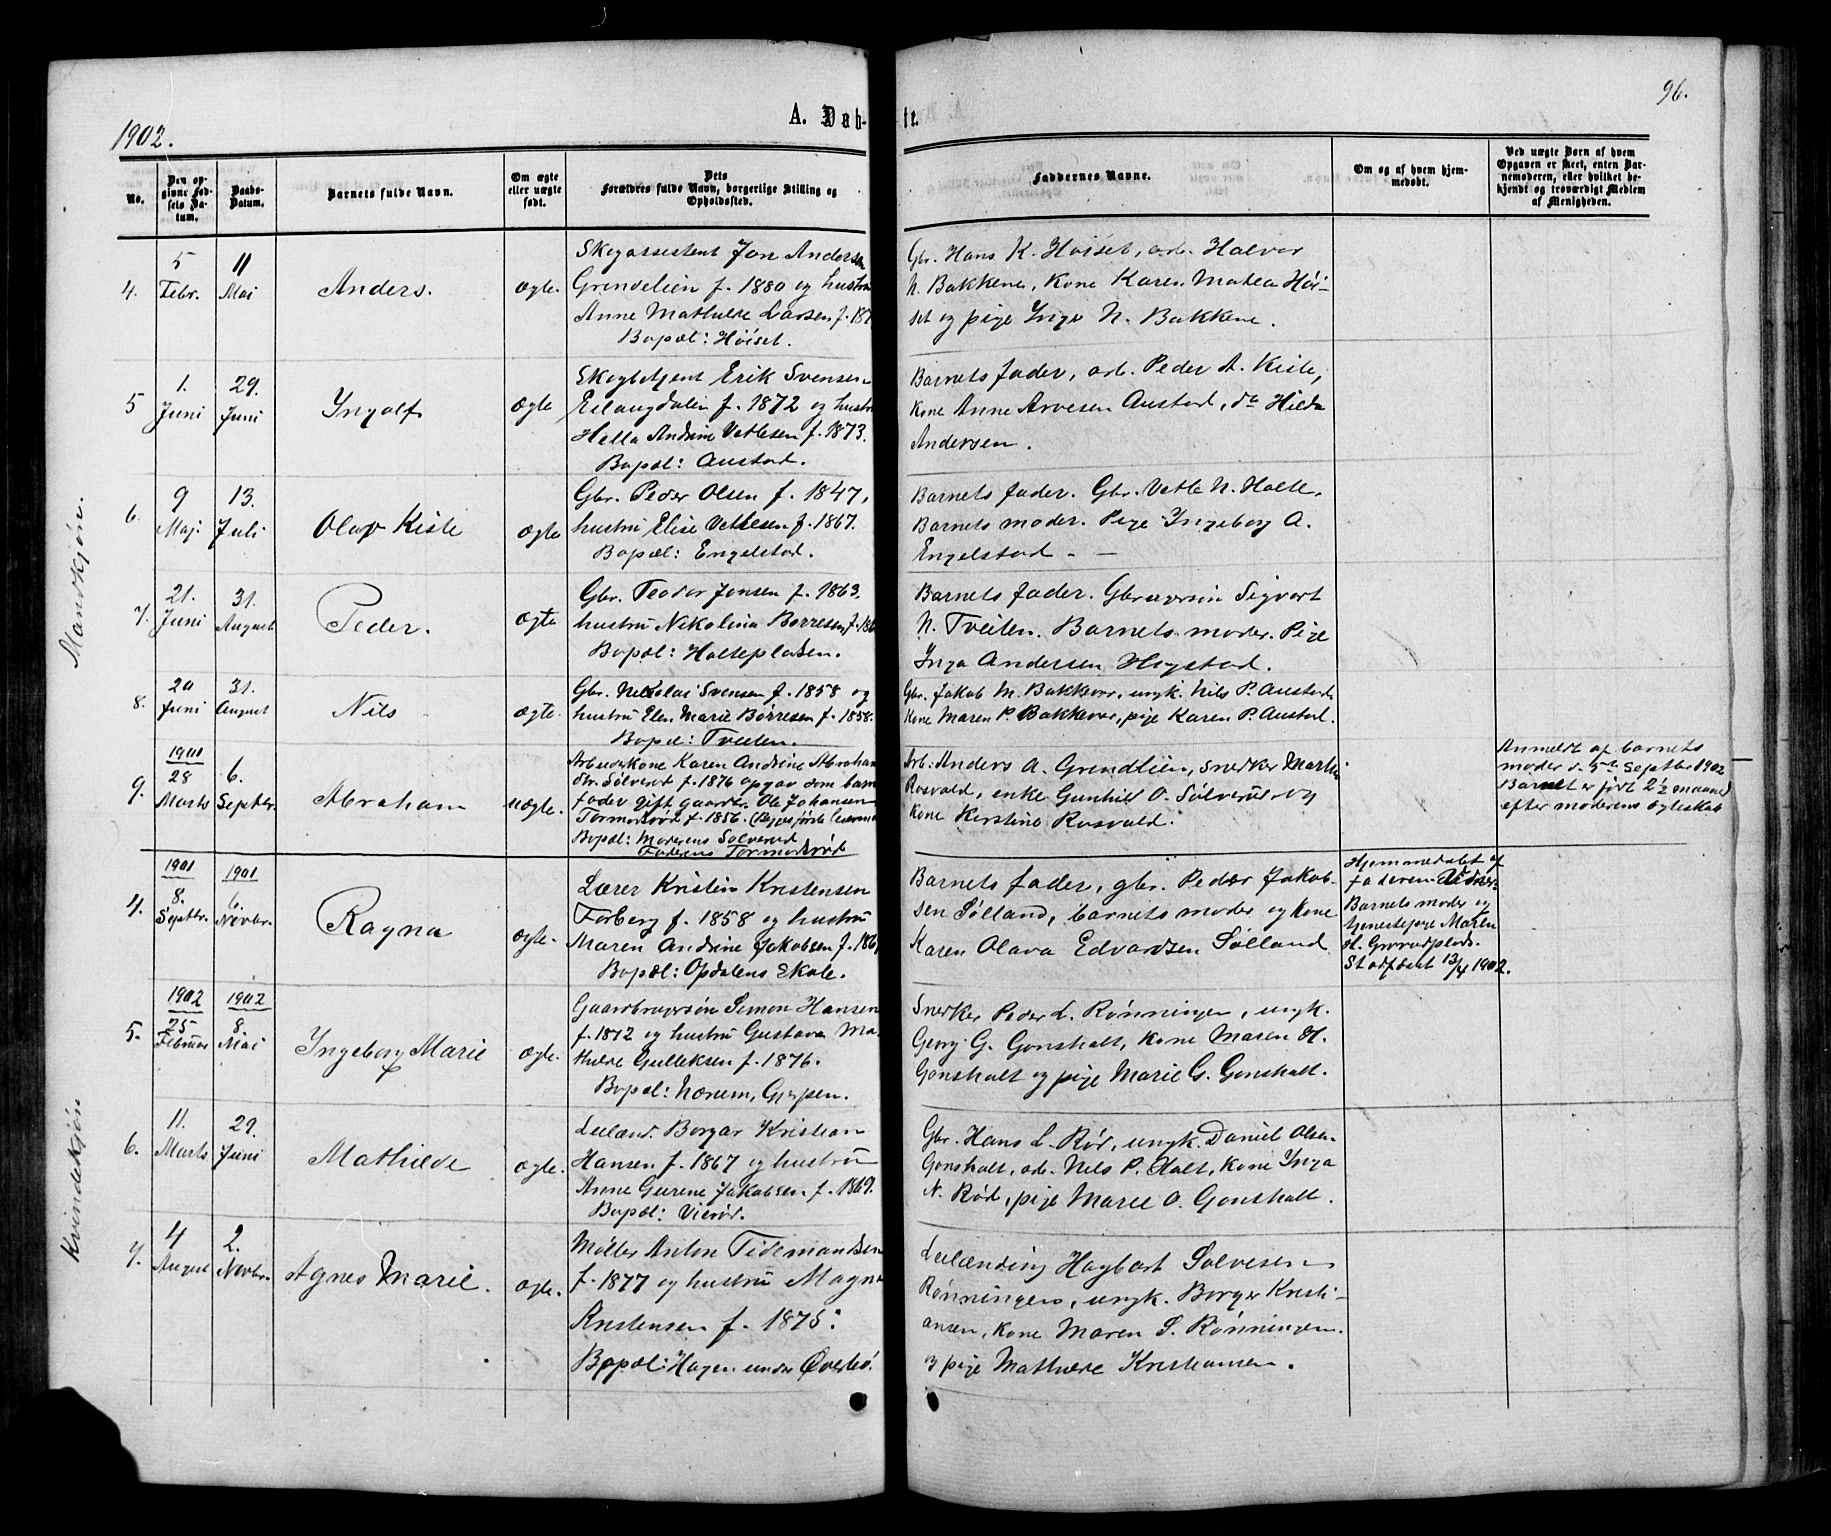 1902.
A. Døb-
te.
96.
No.
Den op-
givne Fød-
sels Da-
tum.
Daabs-
Datum.
Barnets fulde Navn.
Om ægte
eller uægte
født.
Dets
Forældres fulde Navn, borgerlige Stilling og
Opholdssted.
Faddernes Navne.
Om og af hvem hjem-
medøbt.
Ved uægte Børn af hvem
Opgaven er skeet, enten Bar-
nemoderen, eller hvilket be-
kjendt og troværdigt Medlem
af Menigheden.
Mandkjøn.
4.
5
Febr.
11
Mai
Anders.
ægte.
Skogassistent Jon Andersen
Grendelien f. 1880 og hustru
Anne Mathilde Larsen f. 18
Bopæl: Høiset.
Gbr. Hans K. Høiset, arb. Halvor
N. Bakkene, Kone Karen Matea Høi-
set og pige Inge N. Bakkene.
5
1.
Juni
29.
Juni
Ingolf
ægte
Skogbetjent Erik Svensen
f. 1872 og hustru
Hella Andrine Vetlesen f. 1873.
Bopæl: Austad.
Barnets fader, arb. Peder A. Kisle,
Kone Anne Arvesen Austad, do Hilda
Andersen.
6.
9
Maj.
13.
Juli
Olav Kisle
ægte
Gbr. Peder Olsen f. 1847,
hustru Elise Vetlesen f. 1867.
Bopæl: Engelstad.
Barnets fader. Gbr. Vetle N. Holte.
Barnets moder. Pige Ingeborg A.
Engelstad. —
7.
21.
Juni
31.
August
Peder.
ægte
Gbr. Teodor Jonsen f. 1863.
hustru Nikolina Borresen f. 186
Bopæl: Holtepladsen.
Barnets fader. Gbrugersøn Sigvart
N. Tveiten. Barnets moder. Pige
Inga Andersen Hogstad.
8.
20
Juni
31.
August
Nils
ægte.
Gbr. Nikolai Svensen f. 1858 og
hustru Elen Marie Børresen f. 1858.
Bopæl: Tveiten.
Gbr. Jakob M. Bakkevar, ungk. Nils P. Austad.
Kone Maren P. Bakkevar, pige Karen P. Austad.
9.
1901
28
Marts
6.
Septbr.
Abraham
uægte.
Arbeiderkone Karen Andrine Abraham
dtr. Sølverød f. 1876 opgav som barne-
fader gift gaardbr. Ole Johansen
Tormodsrød f. 1856.
Bopæl: Moderens Solverud
Faderens Tormodsrød
Arb. Anders A. Grendlien, snedker Martin
Rosvald, enke Gunhild O. Sølverud og
Kone Kirstine Rosvald.
Anmeldt af barnets
moder d. 5te Septbr 1902
Barnet er født 2½ maaned
efter moderens egteskab
Kvindekjøn
4.
1901
8.
Septbr.
1901
6.
Novbr.
Ragna
ægte.
Lærer Kristen Kristensen
Forberg f. 1858 og hustru
Maren Andrine Jakobsen f. 186
Bopæl: Opdalens Skole.
Barnets fader, gbr. Peder Jakob-
sen Sølland, barnets moder og Kone
Karen Olava Edvardsen Sølland
Hjemmedøbt af
faderen.
Barnets moder og
tjenestepige Maren
H. Gravdplads.
Stadfæstet 13/4 1902.
5.
1902
25
Februar
1902
8.
Mai
Ingeborg Marie
ægte.
Gaardbrugersøn Simon Hansen
f. 1872 og hustru Gustava Ma-
thilde Gulleksen f. 1876.
Bopæl: Nærum, Gjerpen.
Snedker Peder L. Rønningen, ungk.
Georg G. Gonsholt, Kone Maren H.
Gonsholt og pige Marie G. Gonsholt.
6.
11.
Marts
29.
Juni
Mathilde
ægte.
Leilænd. Borgar Kristian
Hansen f. 1867 og hustru
Anne Gurine Jakobsen f. 1869.
Bopæl: Vierød.
Gbr. Hans L. Rød, ungk. Daniel Olsen
Gonsholt, arb. Nils P. Holt, Kone Inga
N. Rød, pige Maree O. Gonsholt.
7.
4
August
2.
Novbr.
Agnes Marie.
ægte.
Møller Anton Tidemandsen
f. 1877 og hustru Magna
Kristensen f. 1875.
Bopæl: Hagen under Øverbø.
Leilænding Hagbart Solvesen
Rønningen, ungk. Borger Kristi-
ansen, Kone Maren S. Rønningen.
og pige Mathilde Kristiansen.